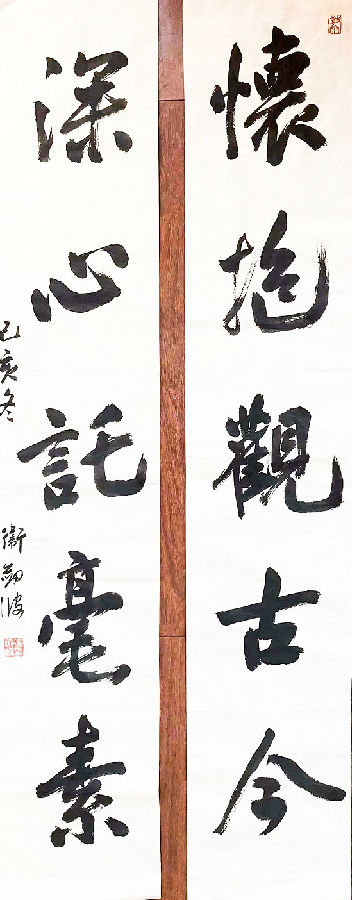 懷抱觀古今
深心託毫素
己亥冬
衛劍波